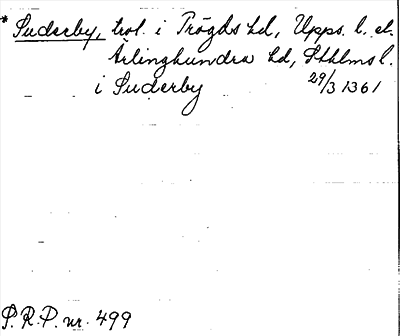 * Suderby, trol. i Trögds hd, Upps. l. el.
Ärlinghundra hd, Sthlms l.
i Suderby 29/3 1361
S.R.P. nr. 499